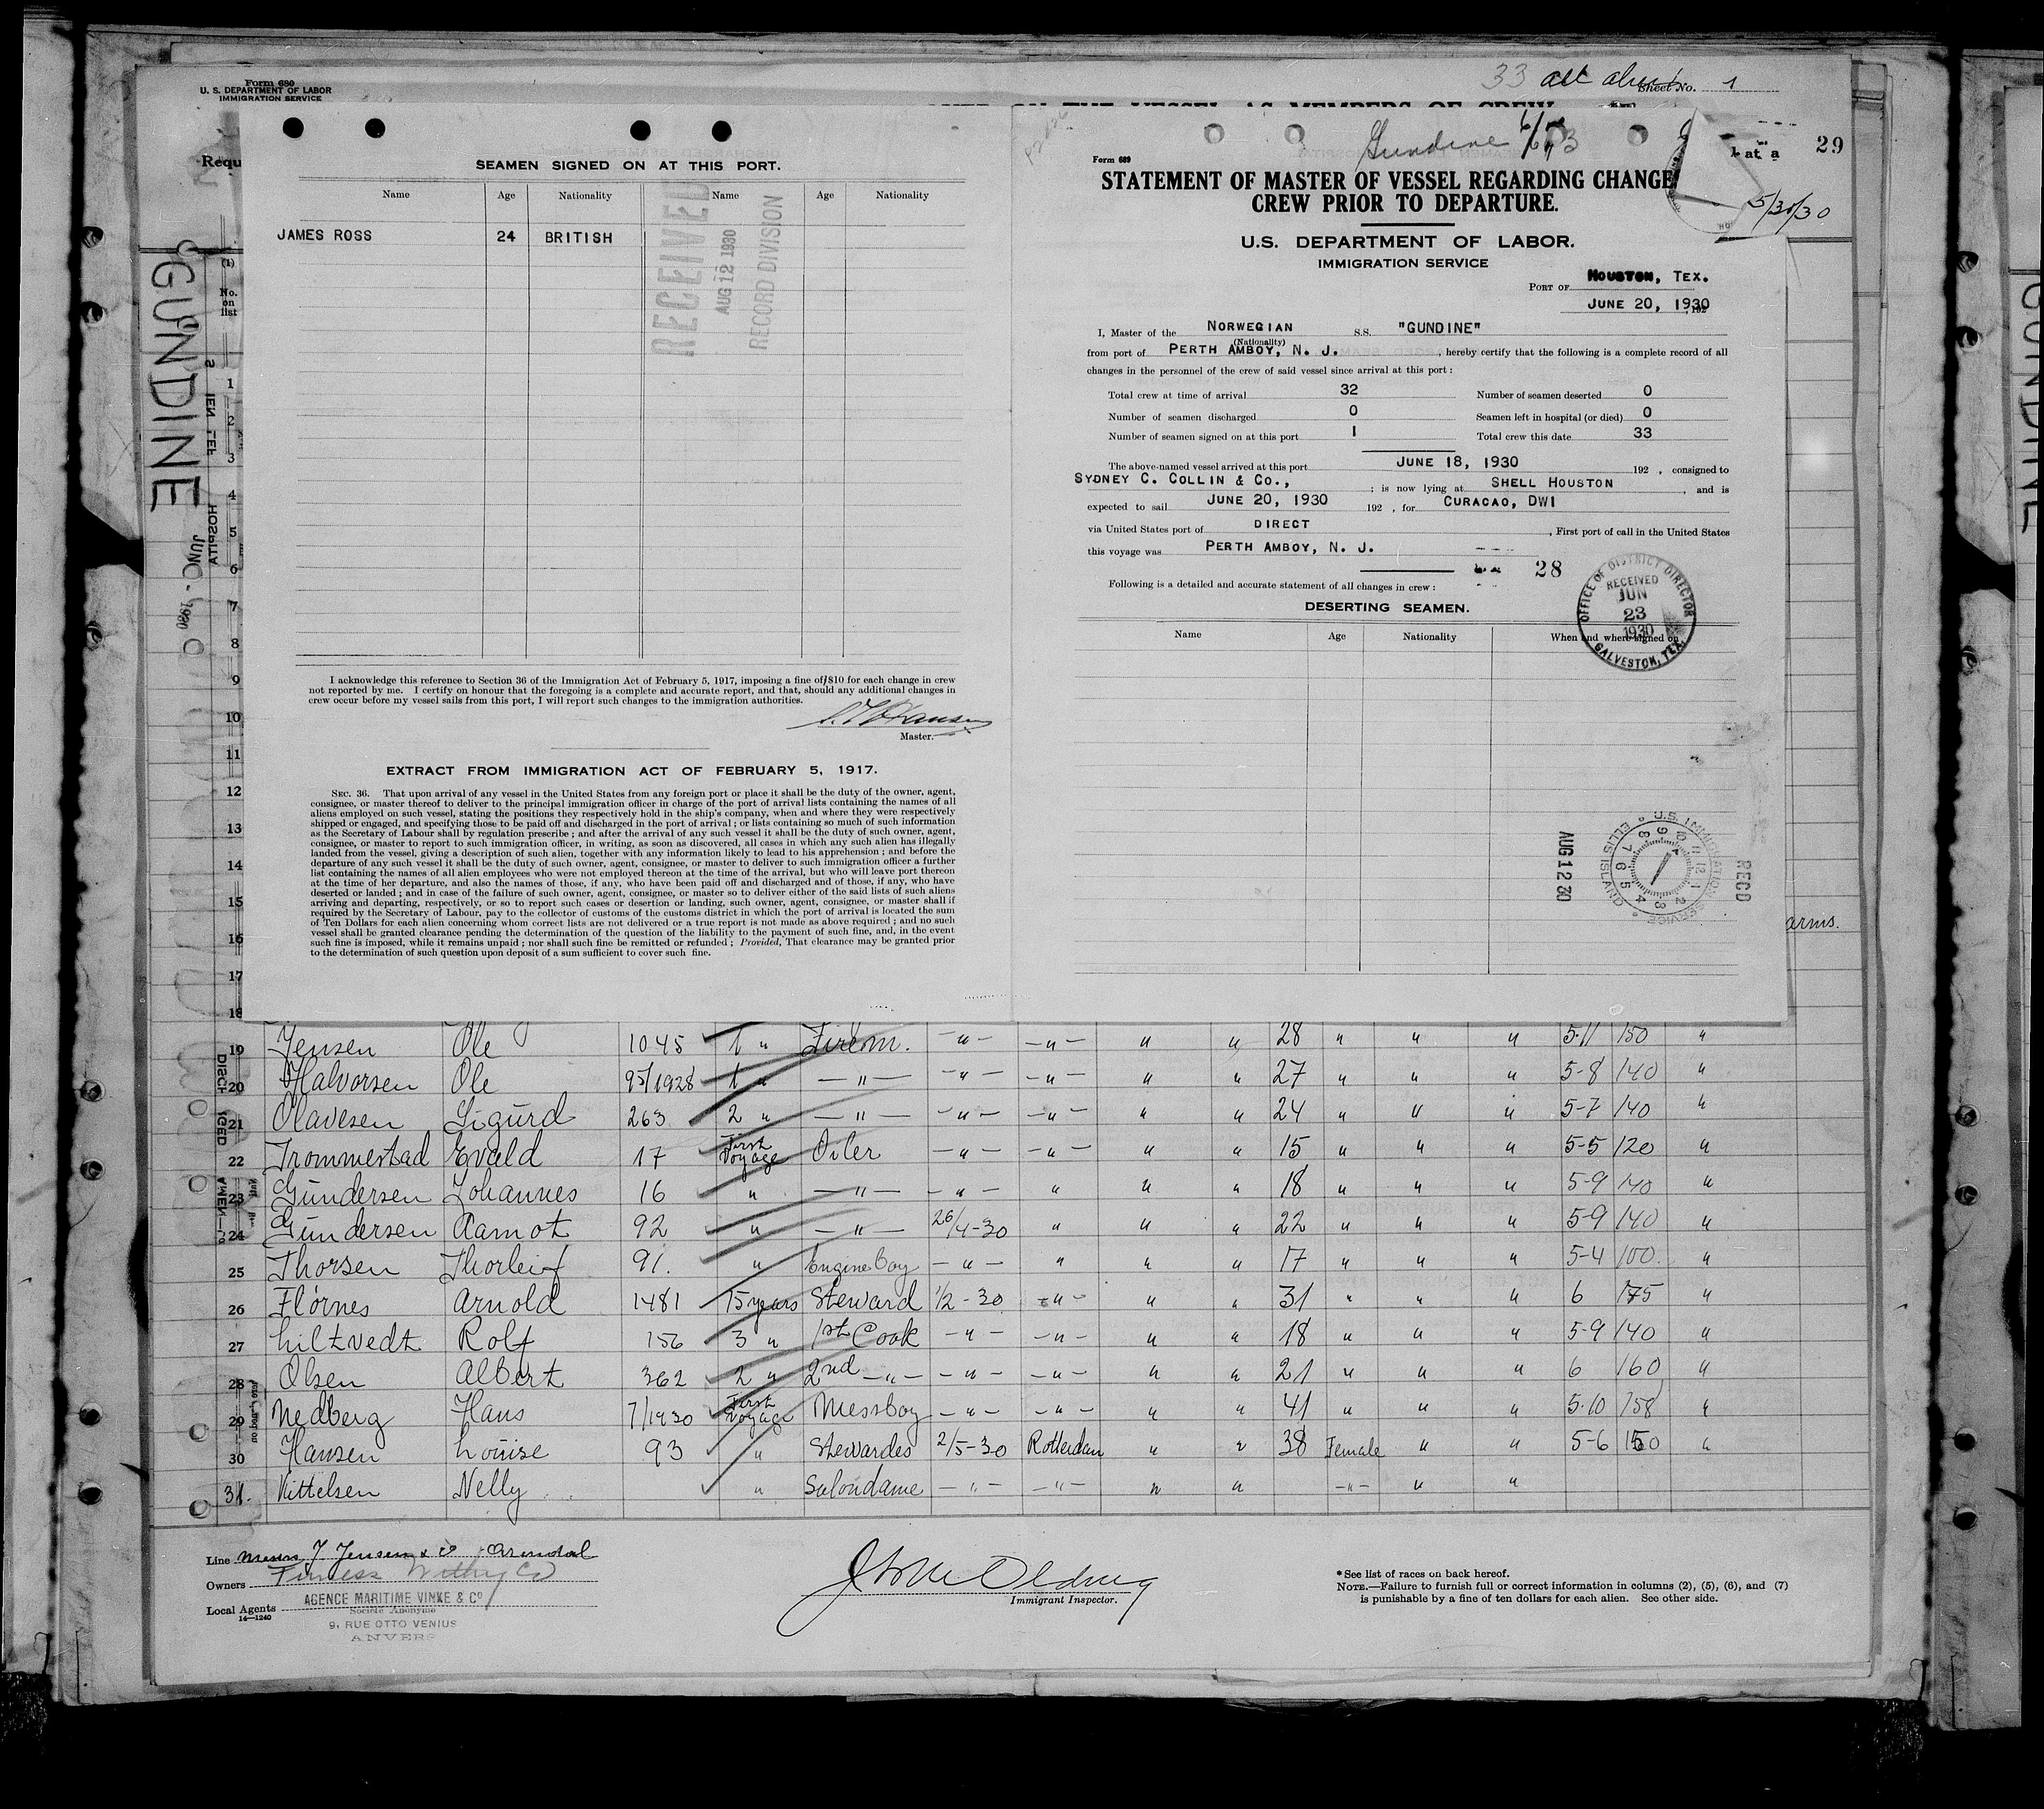 Form 680
U. S. DEPARTMENT OF LABOR
IMMIGRATION SERVICE
33 all
Sheet No. 1
Requ
(1)
No.
on
list
GUNDINE
SEAMEN SIGNED ON AT THIS PORT.
Name Age Nationality Name Age Nationality
JAMES ROSS 24 BRITISH
RECEIVED
AUG 12 1930
RECORD DIVISION
I acknowledge this reference to Section 36 of the Immigration Act of February 5, 1917, imposing a fine of $10 for each change in crew
not reported by me. I certify on honour that the foregoing is a complete and accurate report, and that, should any additional changes in
crew occur before my vessel sails from this port, I will report such changes to the immigration authorities.
Hansen
Master.
EXTRACT FROM IMMIGRATION ACT OF FEBRUARY 5, 1917.
SEC. 36. That upon arrival of any vessel in the United States from any foreign port or place it shall be the duty of the owner, agent,
consignee, or master thereof to deliver to the principal immigration officer in charge of the port of arrival lists containing the names of all
aliens employed on such vessel, stating the positions they respectively hold in the ship's company, when and where they were respectively
shipped or engaged, and specifying those to be paid off and discharged in the port of arrival ; or lists containing so much of such information
as the Secretary of Labour shall by regulation prescribe ; and after the arrival of any such vessel it shall be the duty of such owner, agent,
consignee, or master to report to such immigration officer, in writing, as soon as discovered, all cases in which any such alien has illegally
landed from the vessel, giving a description of such alien, together with any information likely to lead to his apprehension ; and before the
departure of any such vessel it shall be the duty of such owner, agent, consignee, or master to deliver to such immigration officer a further
list containing the names of all alien employees who were not employed thereon at the time of the arrival, but who will leave port thereon
at the time of her departure, and also the names of those, if any, who have been paid off and discharged and of those, if any, who have
deserted or landed ; and in case of the failure of such owner, agent, consignee, or master so to deliver either of the said lists of such aliens
arriving and departing, respectively, or so to report such cases or desertion or landing, such owner, agent, consignee, or master shall if
required by the Secretary of Labour, pay to the collector of customs of the customs district in which the port of arrival is located the sum
of Ten Dollars for each alien concerning whom correct lists are not delivered or a true report is not made as above required ; and no such
vessel shall be granted clearance pending the determination of the question of the liability to the payment of such fine, and, in the event
such fine is imposed, while it remains unpaid ; nor shall such fine be remitted or refunded ; Provided, That clearance may be granted prior
to the determination of such question upon deposit of a sum sufficient to cover such fine.
Gundine
29
5/30/30
Form 689
STATEMENT OF MASTER OF VESSEL REGARDING CHANGE
CREW PRIOR TO DEPARTURE.
U.S. DEPARTMENT OF LABOR.
IMMIGRATION SERVICE
PORT OF HOUSTON, TEX.
JUNE 20, 1930
I, Master of the NORWEGIAN S.S. "GUNDINE"
(Nationality)
from port of PERTH AMBOY, N. J. , hereby certify that the following is a complete record of all
changes in the personnel of the crew of said vessel since arrival at this port :
Total crew at time of arrival 32 Number of seamen deserted 0
Number of seamen discharged 0 Seamen left in hospital (or died) 0
Number of seamen signed on at this port 1 Total crew this date 33
The above-named vessel arrived at this port JUNE 18, 1930 192 , consigned to
SYDNEY C. COLLIN & CO., ; is now lying at SHELL HOUSTON , and is
expected to sail JUNE 20, 1930 192 , for CURACAO, DWI
via United States port of DIRECT , First port of call in the United States
this voyage was PERTH AMBOY, N. J.
28
Following is a detailed and accurate statement of all changes in crew :
OFFICE OF DISTRICT DIRECTOR
RECEIVED
JUN
23
1930
GALVESTON, TEX.
DESERTING SEAMEN.
Name Age Nationality When and where signed on
AUG 12 30
U.S. IMMIGRATION SERVICE
ELLIS ISLAND
REC'D
arms.
1
2
3
4
5
6
7
8
9
10
11
12
13
14
15
16
17
18
19 Jensen Ole 1045 1 " Firem. -"- -"- " " 28 " " " 5-11 150 "
20 Halvorsen Ole 95/1928 1 " -"- -"- -"- " " 27 " " " 5-8 140 "
21 Olavesen Sigurd 263 2 " -"- -"- -"- " " 24 " " " 5-7 140 "
22 Trommestad Evald 17 First Voyage Oiler -"- -"- " " 15 " " " 5-5 120 "
23 Gundersen Johannes 16 " -"- -"- " " " 18 " " " 5-9 140 "
24 Gundersen Aamot 92 " -"- 26/4-30 " " " 22 " " " 5-9 140 "
25 Thorsen Thorleif 91. " Engineboy -"- " " " 17 " " " 5-4 100. "
26 Flørnes Arnold 1481 15 years Steward 1/2-30 -"- " " 31 " " " 6 175 "
27 Liltvedt Rolf 156 3 " 1st Cook -"- -"- " " 18 " " " 5-9 140 "
28 Olsen Albert 362 2 " 2nd -"- -"- -"- " " 21 " " " 6 160 "
29 Nedberg Hans 7/1930 First Voyage Messboy -"- -"- " " 41 " " " 5-10 158 "
30 Hansen Louise 93 " Stewardes 2/5-30 Rotterdam " " 38 Female " " 5-6 150 "
31. Kittelsen Nelly " Salondame -"- -"- " " -"- " "
Line Messrs J Jensen & Co Arendal
Owners Furness Withy Co
Local Agents AGENCE MARITIME VINKE & Co
14—1240 Société Anonyme
9, RUE OTTO VENIUS
ANVERS
Immigrant Inspector.
* See list of races on back hereof.
NOTE.—Failure to furnish full or correct information in columns (2), (5), (6), and (7)
is punishable by a fine of ten dollars for each alien. See other side.